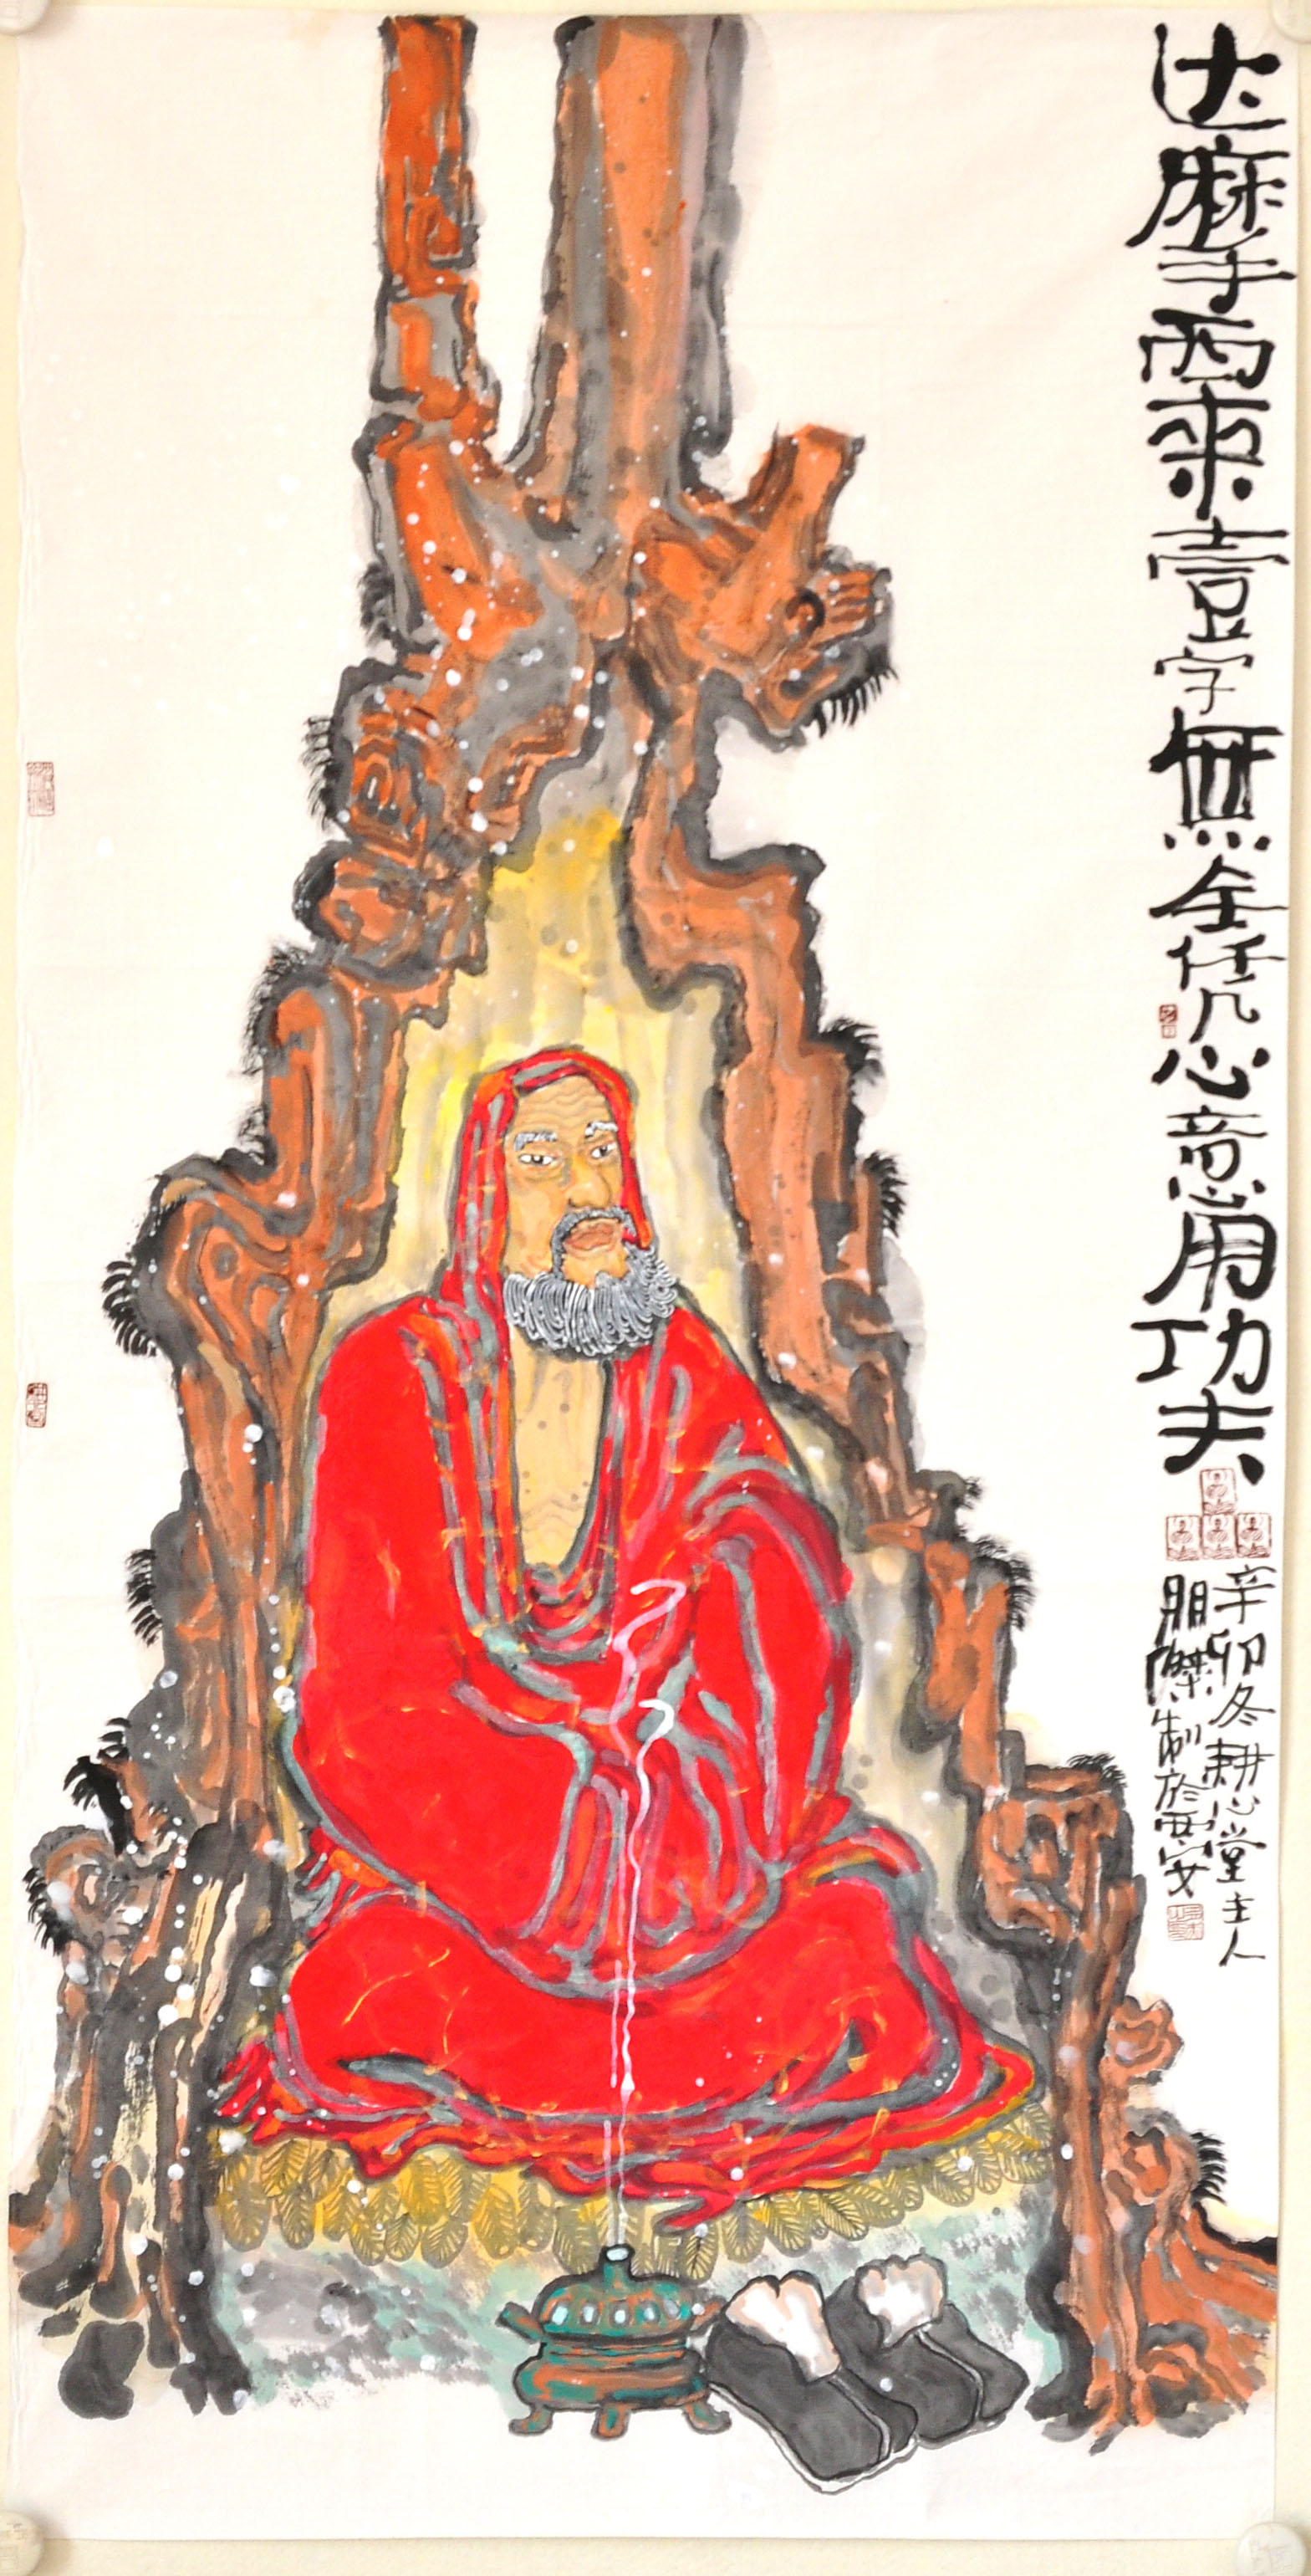 达摩西來壹字無全凭心意用功夫
辛卯冬耕心堂主人
朋傑制於西安